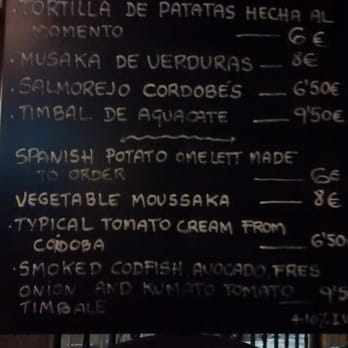 · TORTILLA DE PATATAS HECHA AL
MOMENTO — 6€
· MUSAKA DE VERDURAS — 8€
· SALMOREJO CORDOBÉS — 6'50€
· TIMBAL DE AGUACATE — 9'50€
SPANISH POTATO OMELETT MADE
TO ORDER — 6€
VEGETABLE MOUSSAKA — 8€
· TYPICAL TOMATO CREAM FROM
CORDOBA — 6'50
· SMOKED CODFISH, AVOCADO, FRES
ONION AND KUMATO TOMATO — 9'5
TIMBALE
+10% I.V